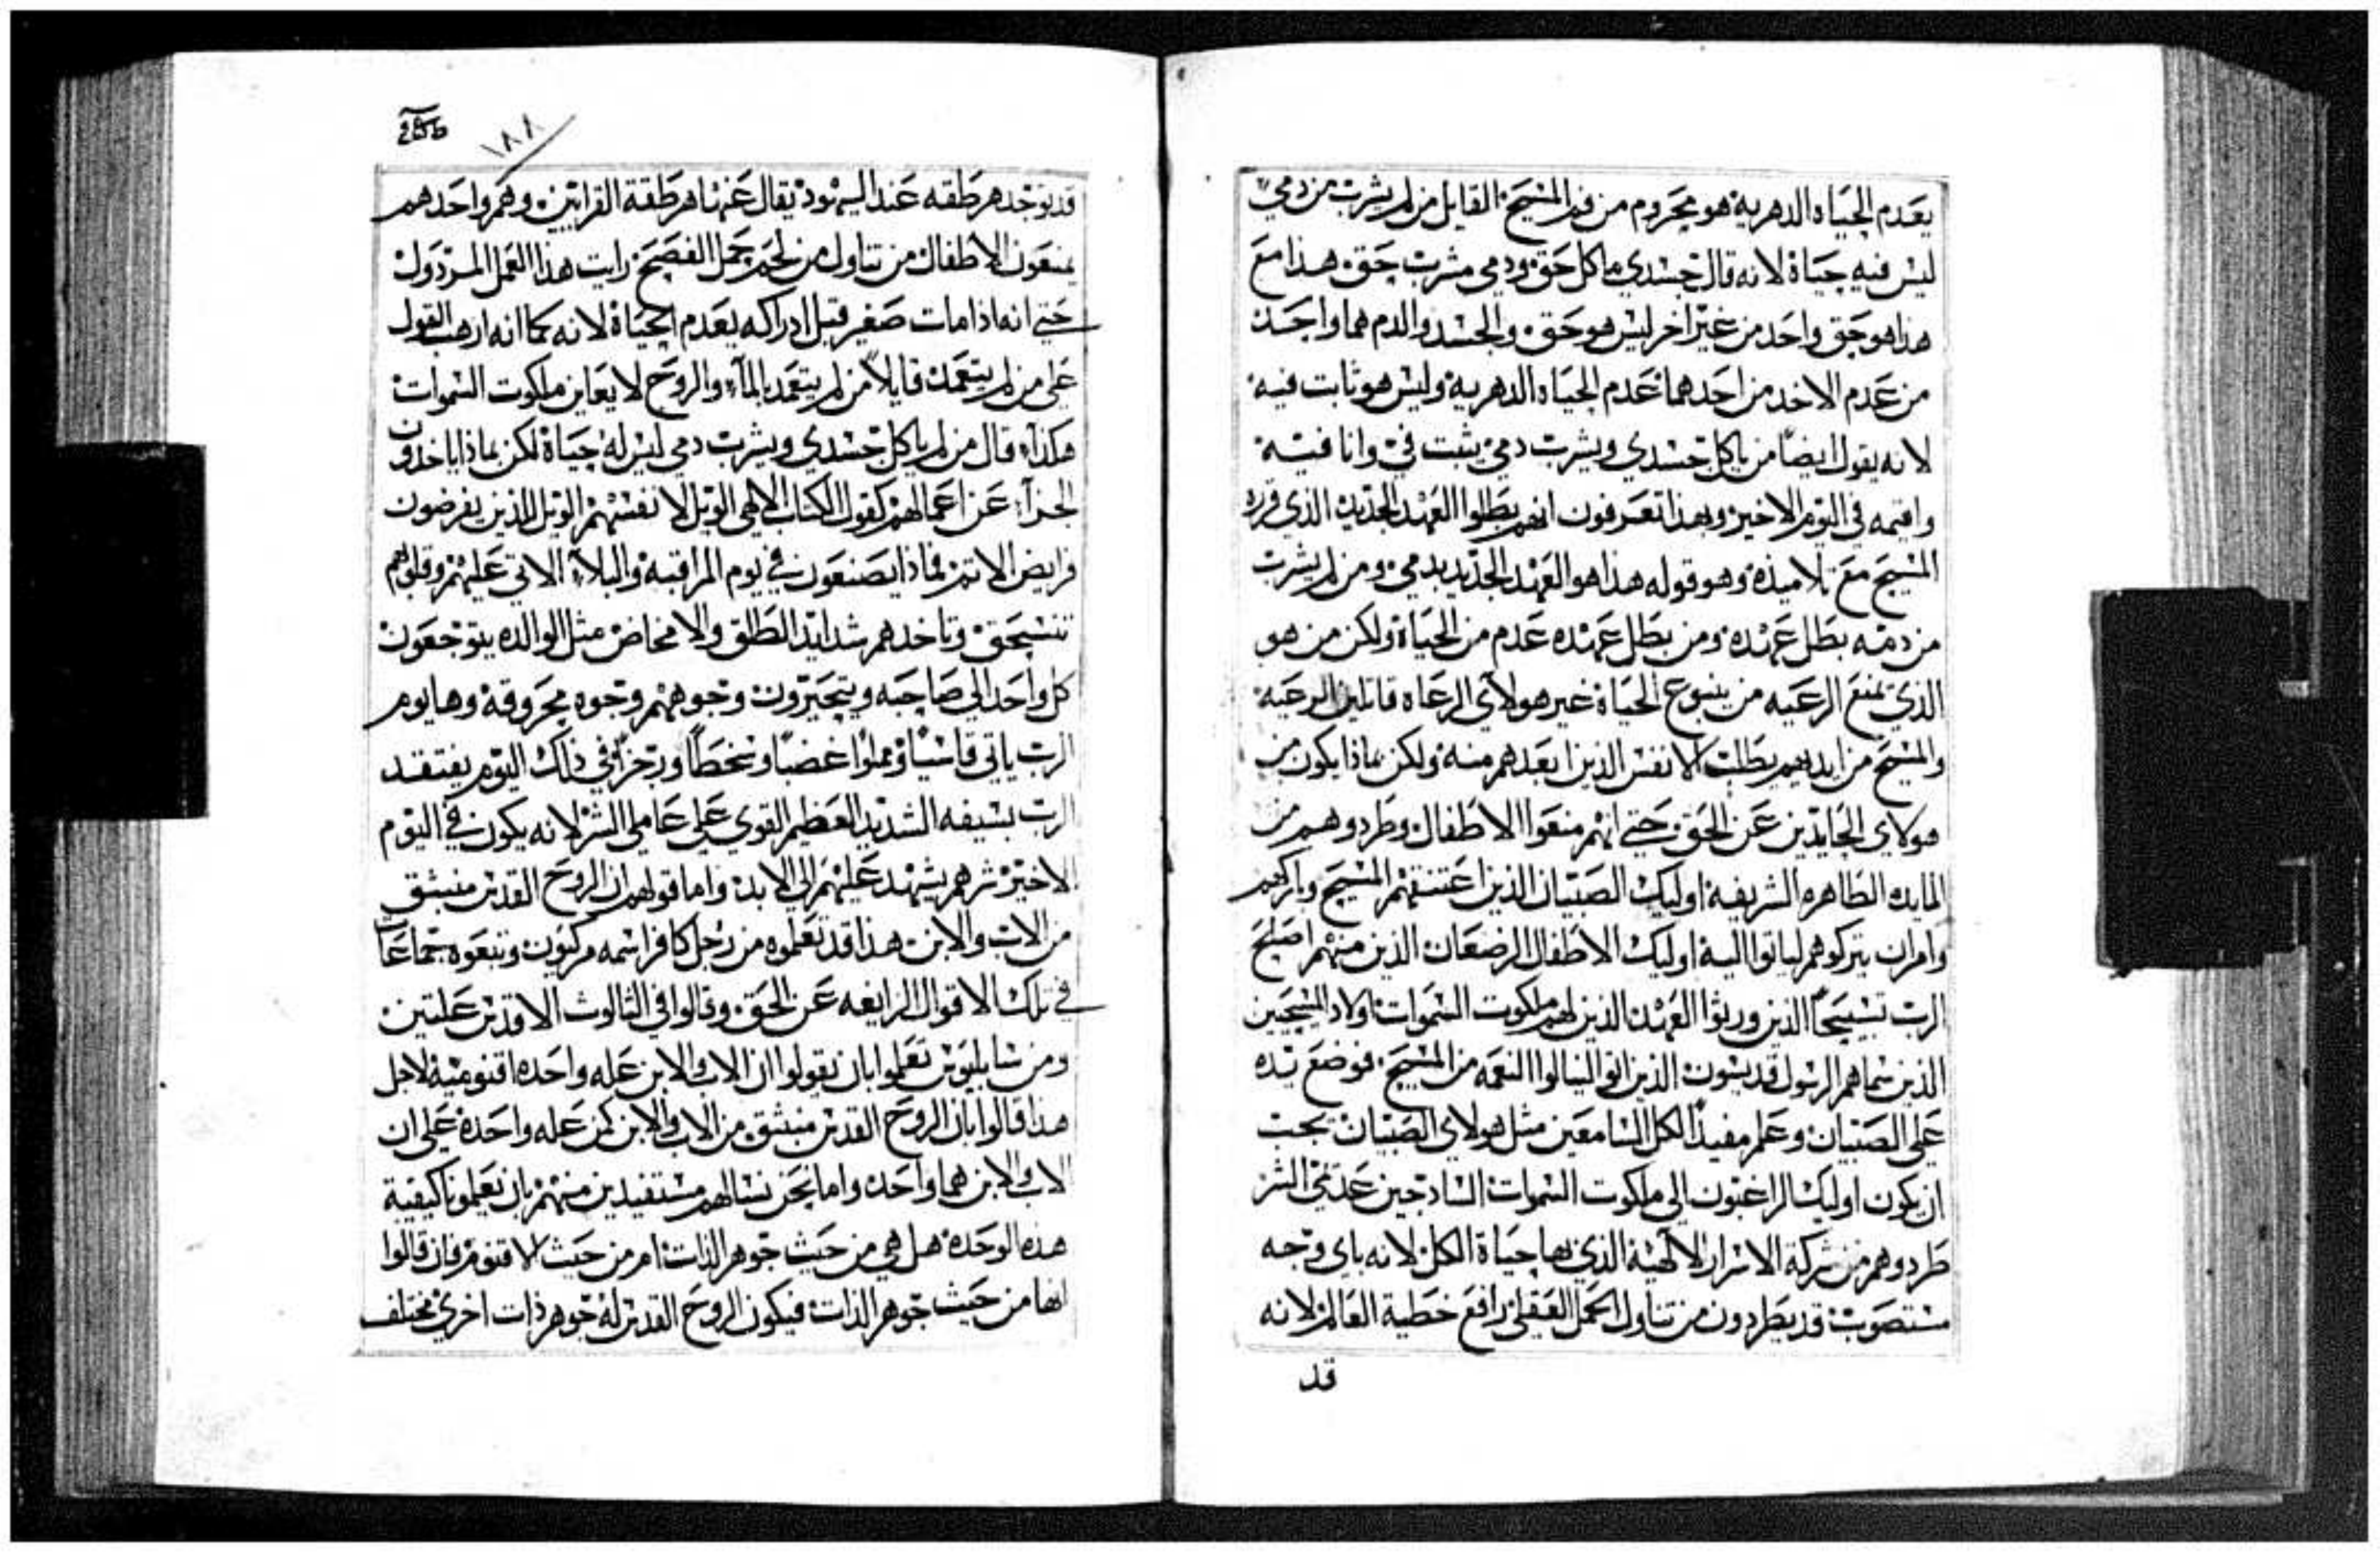 يعدم الحياه الدهرية هو محروم من فم المسيح القايل من لم يشرب من دمي
ليس فيه حياة لانه قال جسدي ماكل حق ودمي مشرب حق هذا مع
هذا هو حق واحد من غير اخر ليس هو حق والجسد والدم هما واحد
من عدم الاخد من احدهما عدم الحياه الدهرية وليس هو ثابت فيه
لانه يقول ايضاً من ياكل جسدي ويشرب دمي يثبت في وانا فيه
واقيمه في اليوم الاخير وبهذا تعرفون انهم بطلوا العهد الجديد الذي قرره
المسيح مع تلاميذه وهو قوله هذا هو العهد الجديد بدمي ومن لم يشرب
من دمه بطل عهده ومن بطل عهده عدم من الحياة ولكن من هو
الذي يمنع الرعيه من ينبوع الحياة غير هولاي الرعاه قاتلين الرعيه
والمسيح من ايديهم يطلب الانفس الذين ابعدهم منه ولكن ماذا يكون من
هولاي الحايدين عن الحق حتي انهم منعوا الاطفال وطردوهم من
المايده الطاهره الشريفة اوليك الصبيان الذين اعتنقهم المسيح وباركهم
وامر ان يتركوهم لياتوا اليه اوليك الاطفال الرضعان الذين منهم اصلح
الرب تسبيحاً الذين ورثوا العهد الذين لهم ملكوت السموات اولاد المسيحين
الذين سماهم الرسول قديسون الذين اتوا لينالوا النعمه من المسيح فوضع يده
علي الصبيان وعلم مفيداً لكل السامعين مثل هولاي الصبيان يجب
ان يكون اوليك الراغبون الي ملكوت السموات السادجين عدمي الشر
طردوهم من شركة الاسرار الالهية الذي بها حياة الكل لانه باي وجه
مستصوب قد يطردون من تناول الحمل العقلي رافع خطية العالم لانه
قد
256
١٨٨
قد توجد هرطقه عند اليهود يقال عنها هرطقة القرايين وهم واحدهم
يمنعون الاطفال من تناول من لحم حمل الفصح رايت هذا العمل المرذول
حتي انه اذا مات صغير قبل ادراكه يعدم الحياة لانه كما انه ارهب القول
علي من لم يتعمد قايلاً من لم يتعمد بالماء والروح لا يعاين ملكوت السموات
هكذا قال من لم ياكل جسدي ويشرب دمي ليس له حياة لكن ماذا ياخذون
الجزاء عن اعمالهم كقول الكتاب الالهي الويل لانفسهم الويل للذين يفرضون
فرايض الاثم فماذا يصنعون في يوم المراقبة والبلاء الاتي عليهم وقلوبهم
تنسحق وتاخدهم شدايد الطلق والامخاض مثل الوالده يتوجعون
كل واحد الي صاحبه ويتحيرون وجوههم وجوه محروقة وها يوم
الرب ياتي قاسياً ومملواً غضباً وسخطاً ورجزاً في ذلك اليوم يفتقد
الرب بسيفه الشديد العظيم القوي علي عاملي الشر لانه يكون في اليوم
الاخير شرهم يشهد عليهم الي الابد واما قولهم ان الروح القدس منبثق
من الاب والابن هذا قد تعلموه من رجل كافر اسمه مركيون وتبعوه جماعات
في تلك الاقوال الرايغه عن الحق وقالوا في الثالوث الاقدس علتين
ومن سابليوس تعلموا بان يقولوا ان الاب والابن عله واحده اقنومية لاجل
هذا قالوا بان الروح القدس منبثق من الاب والابن كمن عله واحدة علي ان
الاب والابن هما واحد واما نحن نسالهم مستفيدين منهم بان يعلمونا كيفية
هذه الوحدة هل هي من حيث جوهر الذات ام من حيث الاقنوم فان قالوا
انها من حيث جوهر الذات فيكون الروح القدس له جوهر ذات اخري مختلف